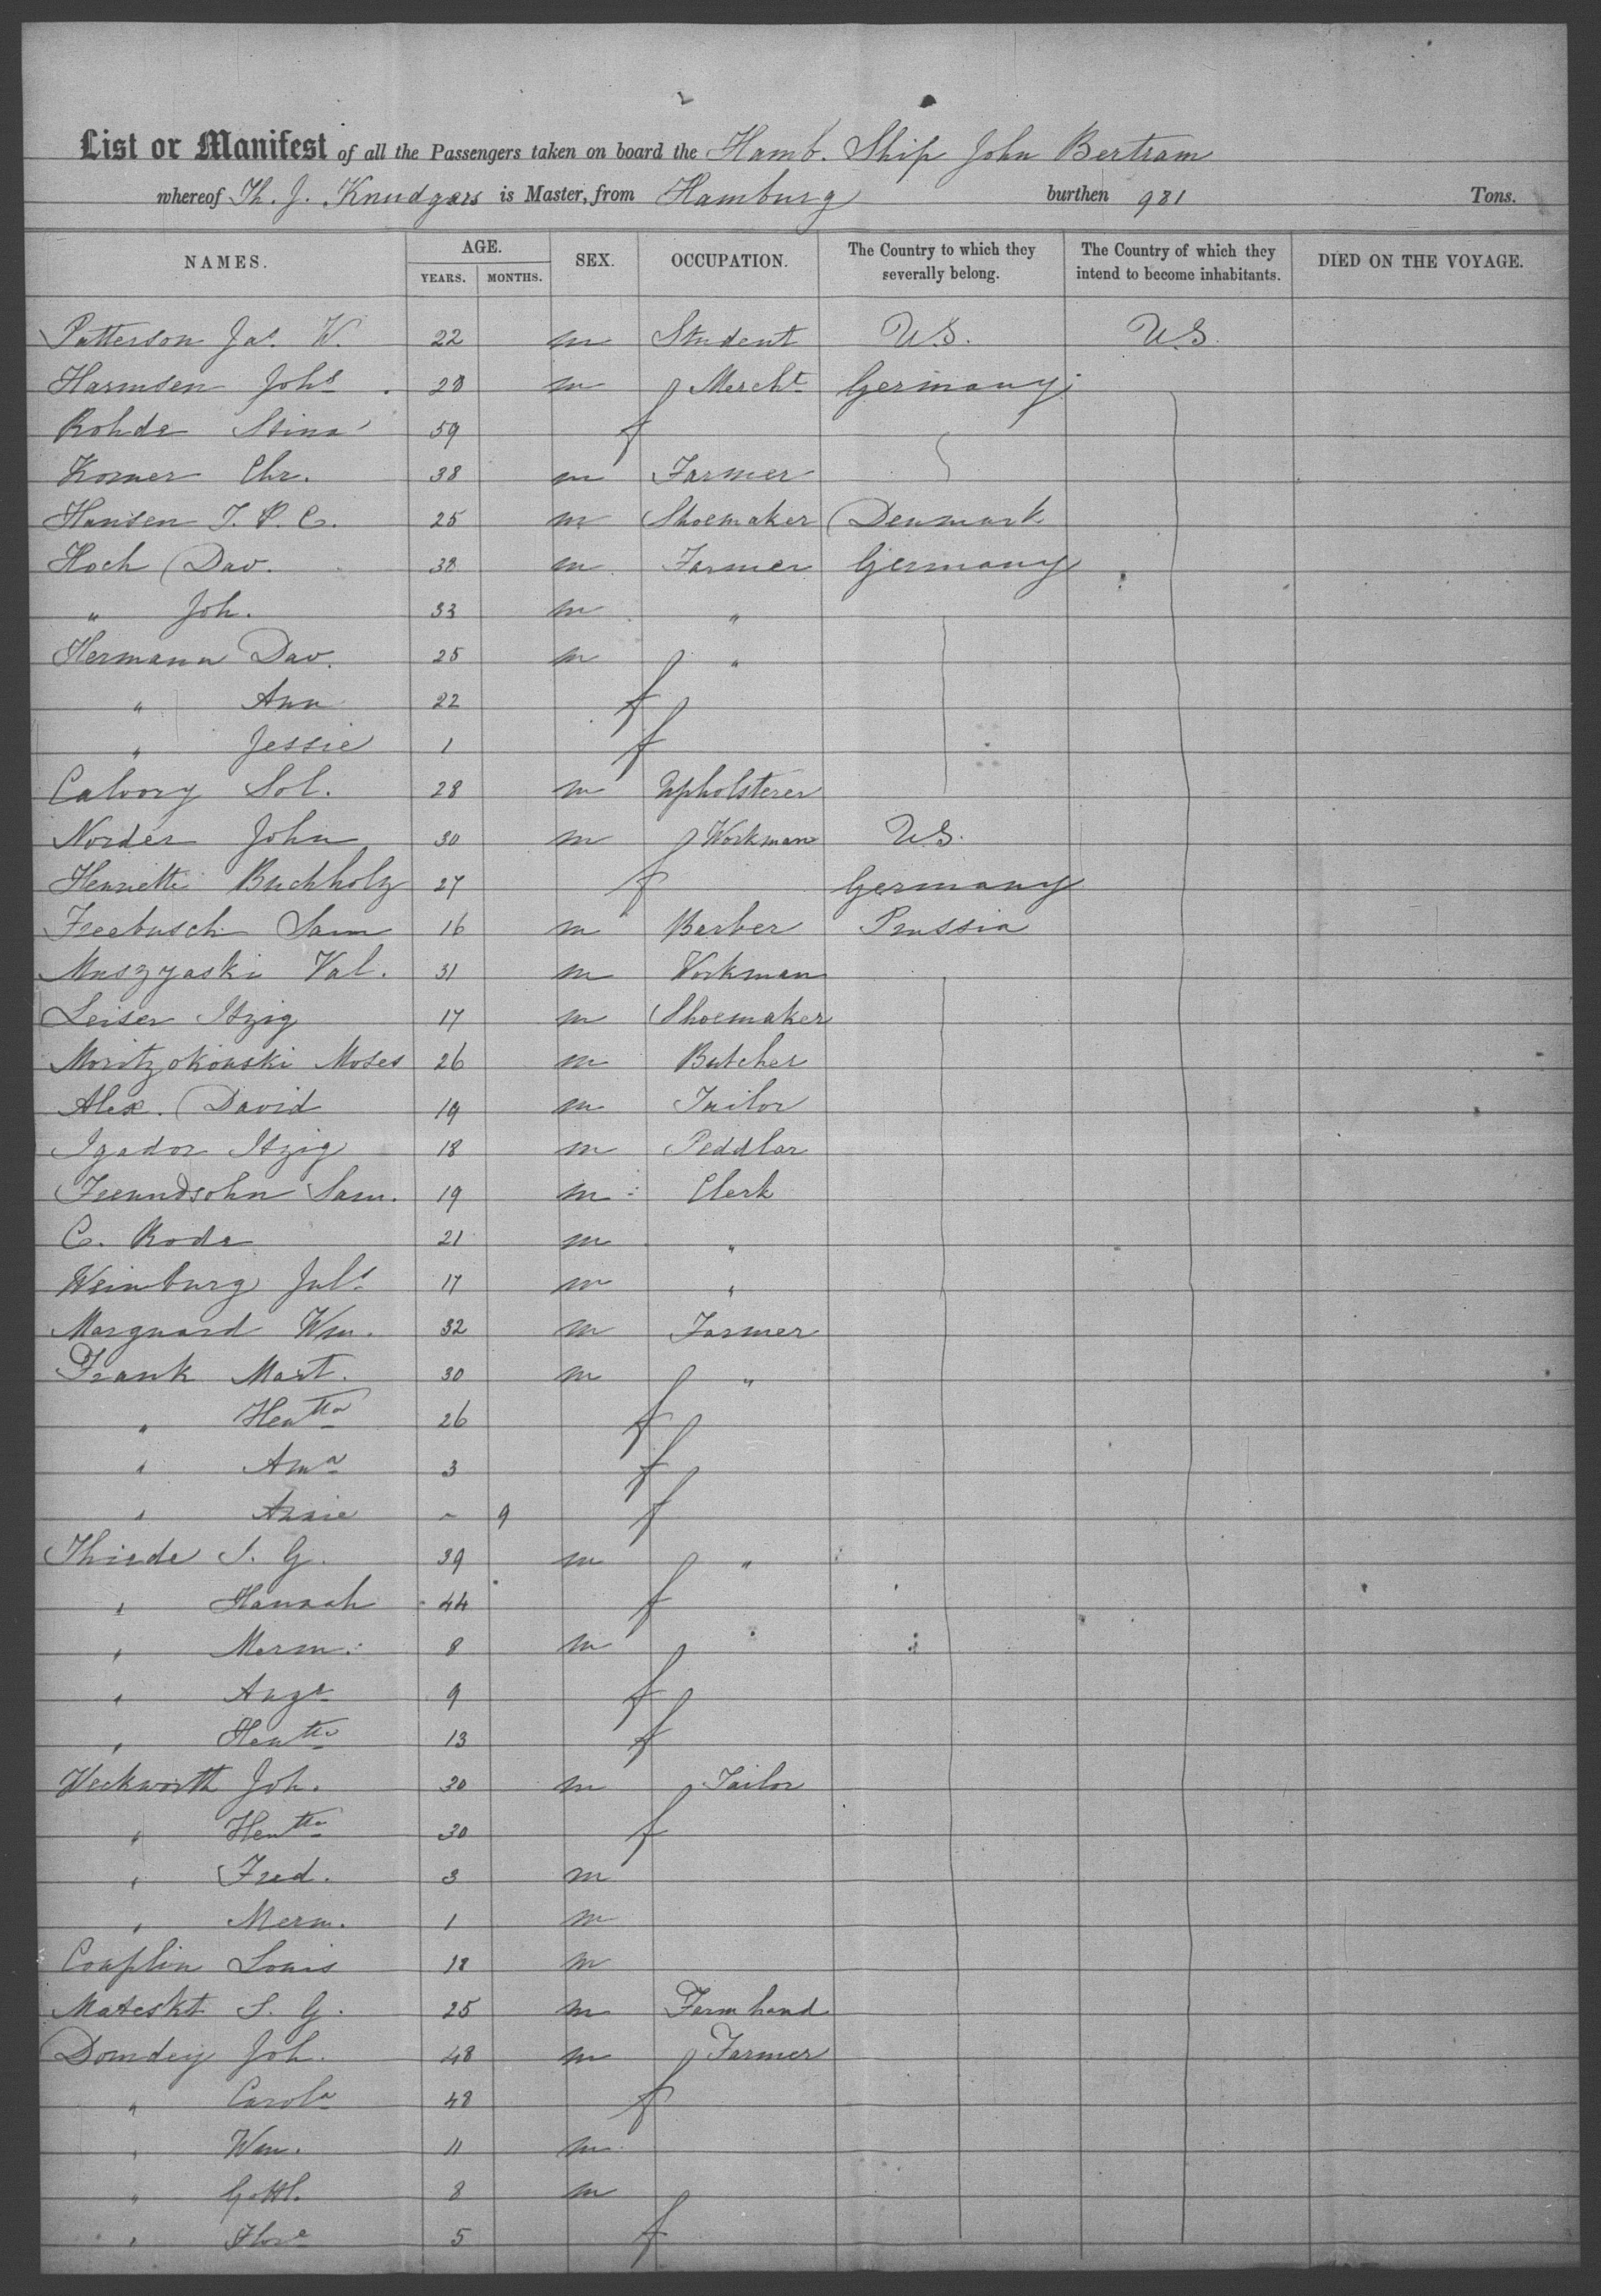 List or Manifest of all the Passengers taken on board the Hamb. Ship John Bertram
whereof Th. J. Knudgers is Master, from Hamburg burthen 981 Tons.
NAMES. AGE. YEARS. MONTHS. SEX. OCCUPATION. The Country to which they severally belong. The Country of which they intend to become inhabitants. DIED ON THE VOYAGE.
Patterson Jas. W. 22 m Student U.S. U.S.
Harmsen Johs 28 m Mercht Germany
Rohde Stina 59 f
Korner Chr. 38 m Farmer
Hansen J. P. C. 25 m Shoemaker Denmark
Hoch Dav. 38 m Farmer Germany
" Joh. 33 m "
Hermann Dav. 25 m "
" Ann 22 f
" Jessie 1 f
Calvory Sol. 28 m Upholsterer
Norder John 30 m Workman U.S.
Henriette Buchholz 27 f Germany
Freebusch Sam 16 m Barber Prussia
Muszyaski Val. 31 m Workman
Leiser Itzig 17 m Shoemaker
Moritzokowski Moses 26 m Butcher
Alex. David 19 m Tailor
Igador Itzig 18 m Peddlar
Freundsohn Sam. 19 m Clerk
C. Rode 21 m "
Weinburg Juls 17 m "
Marguard Wm. 32 m Farmer
Frank Mart. 30 m "
" Hentta 26 f
" Ama 3 f
" Annie - 9 f
Thiede J. G. 39 m "
" Hannah 44 f
" Herm. 8 m
" Auga 9 f
" Hentta 13 f
Weckworth Joh. 30 m Tailor
" Hentta 30 f
" Fred. 3 m
" Herm. 1 m
Couplin Louis 18 m
Mateskt J. G. 25 m Farm hand
Domdey Joh. 48 m Farmer
" Carola 48 f
" Wm. 11 m
" Gottl. 8 m
" Flore 5 f